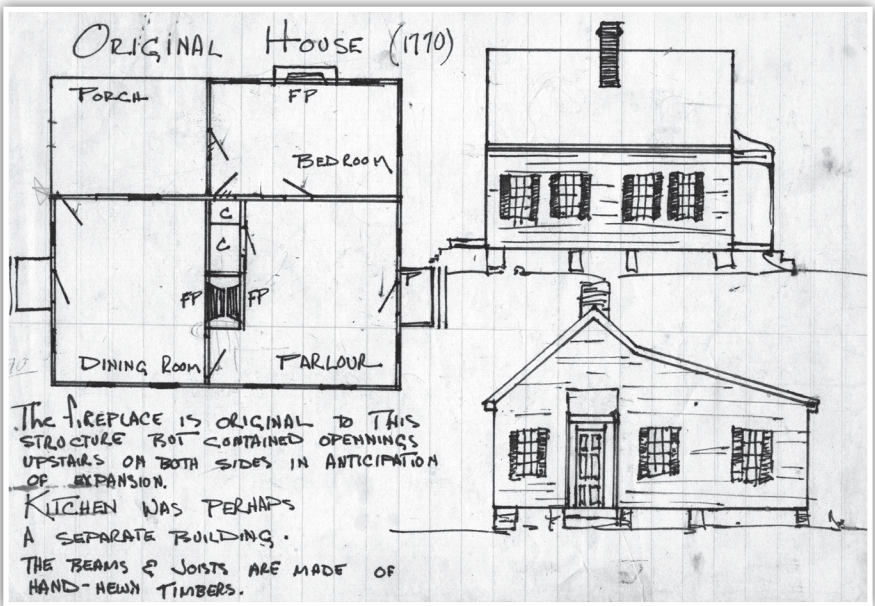 ORIGINAL HOUSE (1770)
PORCH
FP
BEDROOM
C
C
FP FP
DINING ROOM
PARLOUR
The FIREPLACE IS ORIGINAL TO THIS
STRUCTURE BUT CONTAINED OPENNINGS
UPSTAIRS ON BOTH SIDES IN ANTICIPATION
OF EXPANSION.
KITCHEN WAS PERHAPS
A SEPARATE BUILDING.
THE BEAMS & JOISTS ARE MADE OF
HAND-HEWN TIMBERS.